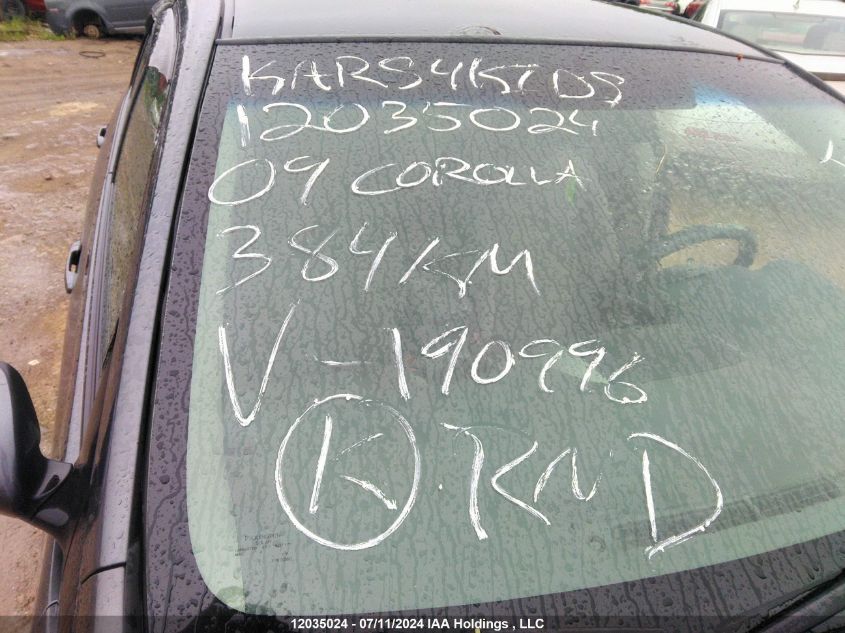 KARS4KIDS
12035024
09 COROLLA
384KM
V-190996
K RND
12035024 - 07/11/2024 IAA Holdings , LLC